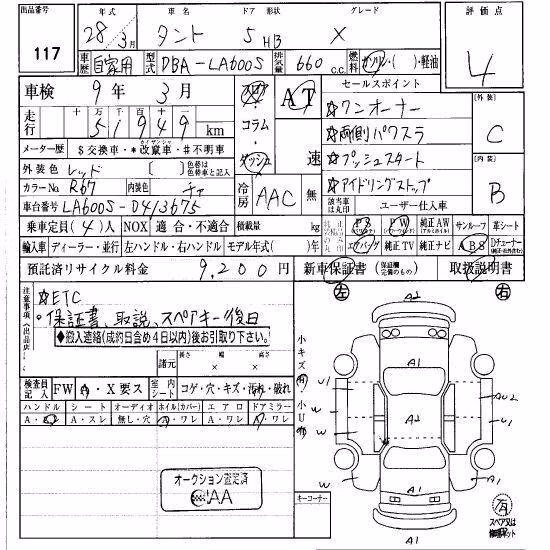 出品番号
117
年式 車名 ドア 形状 グレード
28年3月 タント 5 HB X
評価点
4
車歴 自家用 型式 DBA-LA600S 排気量 660 c.c. 燃料 ガソリン・( )・軽油
車検 9年 3月
走行 十 万 千 百 十 一
51949 km
メーター歴 $交換車・*改竄車・#不明車
外装色 レッド ( ) 色替は色替車と記入
カラーNo R67 内装色 チャ
車台番号 LA600S-0413675
フロア・コラム・ダッシュ
AT 速
冷房 AAC 無
セールスポイント
☆ワンオーナー
☆両側パワスラ
☆プッシュスタート
☆アイドリングストップ
該当車は丸印 ユーザー仕入車
[外装] C
[内装] B
乗車定員(4)人 NOX 適合・不適合 積載量 kg
PS PW 純正AW サンルーフ 革シート
輸入車 ディーラー・並行 左ハンドル・右ハンドル モデル年式( )年
エアバッグ 純正TV 純正ナビ ABS
預託済リサイクル料金 9,200円
新車保証書 取扱説明書
注意事項(出品店)
☆ETC
・保証書、取説、スペアキー後日
◆搬入連絡(成約日含め4日以内)後お引取り下さい。◆
諸元 長さ cm 幅 cm 高さ cm
検査員記入 FW A・X要ス 室内シート コゲ・穴・キズ・汚れ・破れ
ハンドル シート オーディオ ホイル(カバー) エアロ ドアミラー
A・スレ A・スレ 無し・穴 A・ワレ A・ワレ A・ワレ
オークション査定済
AA
キーコーナー
小キズ有
小U有
左 右
A2
A1
U1
W
W
W
A2
AU2
U1
A1
A1
A1
スペア又は修理キット